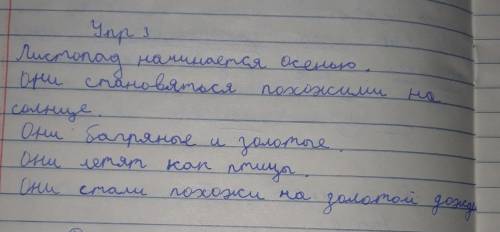 Упр 3
Листопад начинается осенью.
Они становяться похожими на
солнце.
Они багряные и золотые.
Они летят как птицы.
Они стали похожи на золотой дождь